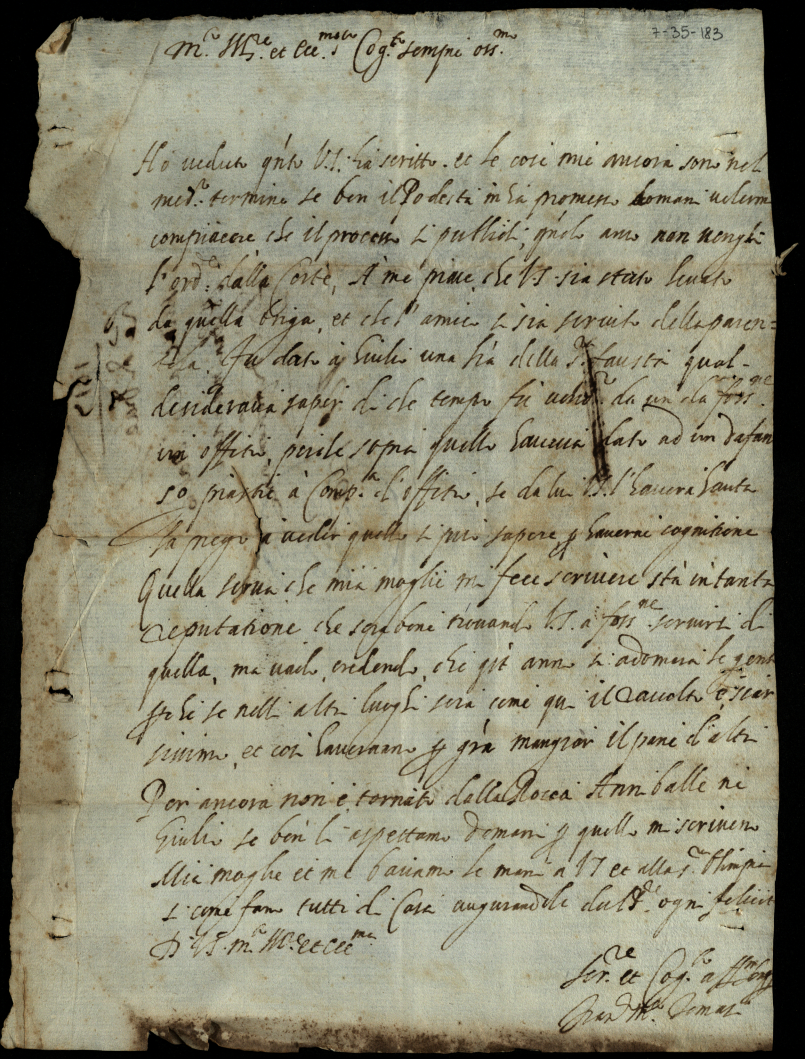 7-35-183
m.to Ill.re et Ecc.mo s.r Cog.to sempre oss.mo
Ho veduto q.nto V.S. ha scritto. et le cose mie ancora son nel
med.o termine se ben il Podestà m'ha promesso domani volermi
compiacere che il processo si publichi, q.ndo anco non venghi
l'ord.e dalla Corte, A me piace che V.S. sia stato levato
da quella briga, et che l'amico si sia servito della paren=
tela. fu dato à Giulio una l.ra della s.ra fausta qual
desiderava saper di che tempo fu da un da foss.ne
offitio, perche sopra quello haveva dato ad un da fan
so piastre à Comp.to d'offitio, se da lui V.S. l'haverà hauta
la prego à veder quello si può sapere p haverne cognitione
Quella serva che mia moglie mi fece scrivere stà in tanta
reputatione che serà bene trovando V.S. à foss.ne servirsi di
quella, ma vado credendo che q.sto anno si adomerà le gente
p.che se nelli altri luoghi serà come qui il raccolto è scar
sissimo et così haveranno p gra mangiar il pane d'altri
Per ancora non è tornato dalla Rocca Anniballe ne
Giulio se ben li aspettamo domani p quello mi scrivono
Mia moglie et me baciamo le mani à V.S. et alla s.ra Olimpia
si come fanno tutti di Casa augurandole da N. S. ogni felicità
Di V.S. m.to Ill.re et Ecc.ma
Ser.re et Cog.to aff.mo